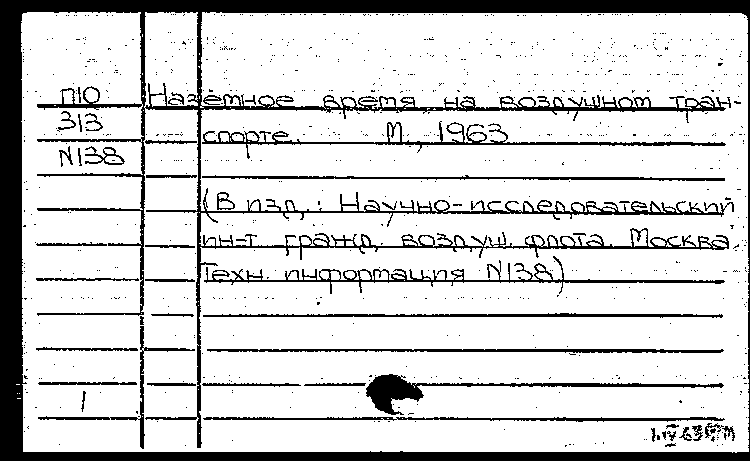 П10 Наземное время на воздушном тран-
313 спорте. М., 1963
N138
(В изд.: Научно-исследовательский
ин-т гражд. возд.уш. флота. Москва.
Техн. информация N138)
1
1.IV 63